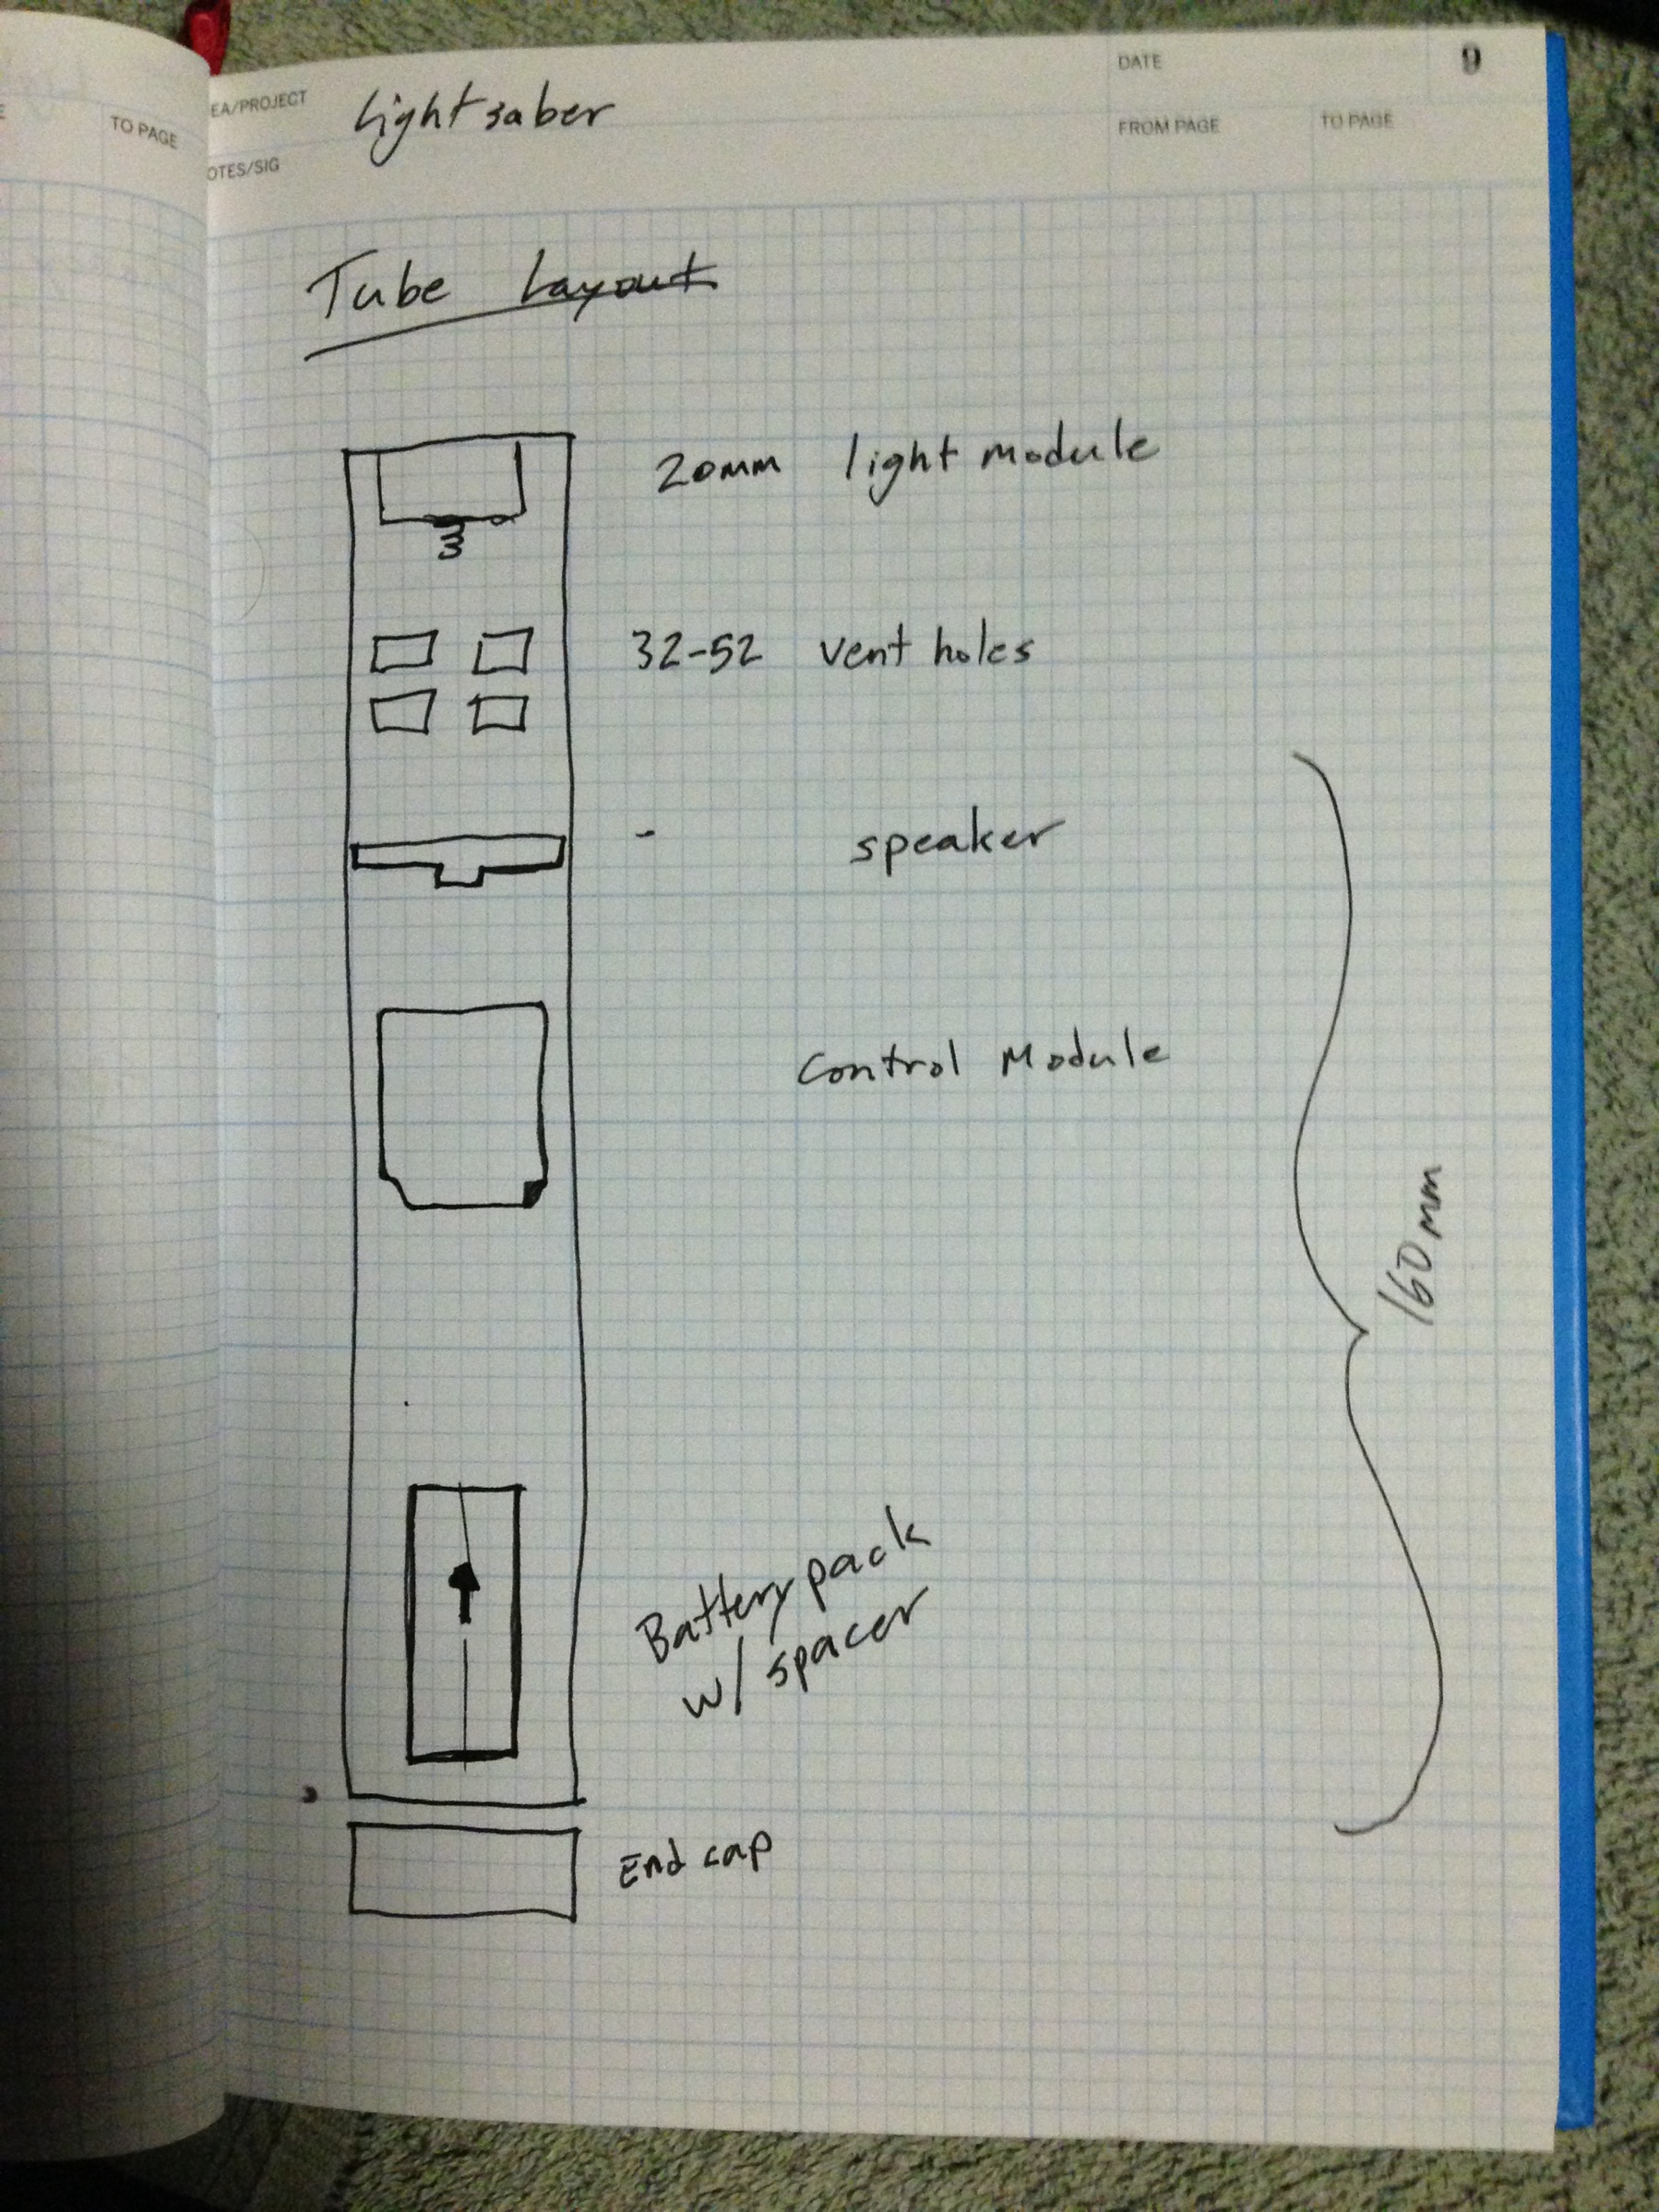 TO PAGE
EA/PROJECT
Lightsaber
DATE
9
OTES/SIG
FROM PAGE
TO PAGE
Tube Layout
20mm light module
32-52 vent holes
- speaker
Control Module
160mm
Battery pack
w/ spacer
End cap